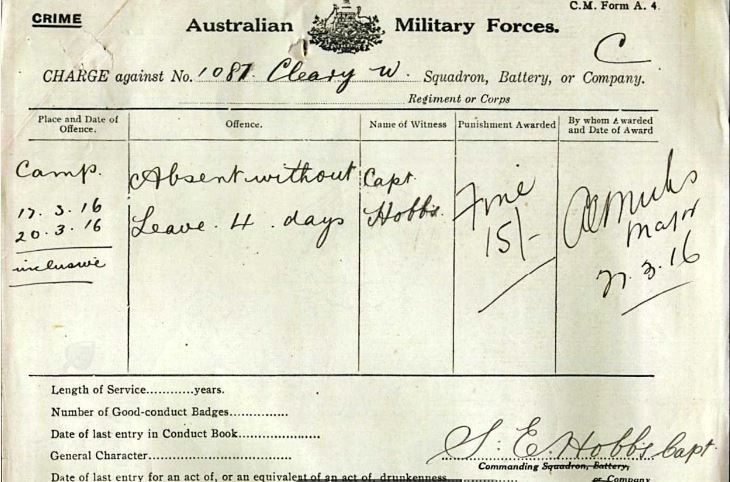 C.M. Form A. 4.
CRIME
Australian Military Forces.
C
CHARGE against No. 1087. Cleary W. Squadron, Battery, or Company.
Regiment or Corps
Place and Date of Offence. Offence. Name of Witness Punishment Awarded By whom Awarded and Date of Award
Camp. Absent without Capt. Fine
17. 3. 16 Leave 4 days Hobbs. 15/- Major
20. 3. 16
inclusive 3. 16
Length of Service............years.
Number of Good-conduct Badges...............
Date of last entry in Conduct Book.....................
General Character..................... S. E. Hobbs Capt.
Commanding Squadron, Battery,
Date of last entry for an act of, or an equivalent of an act of, drunkenness............... or Company